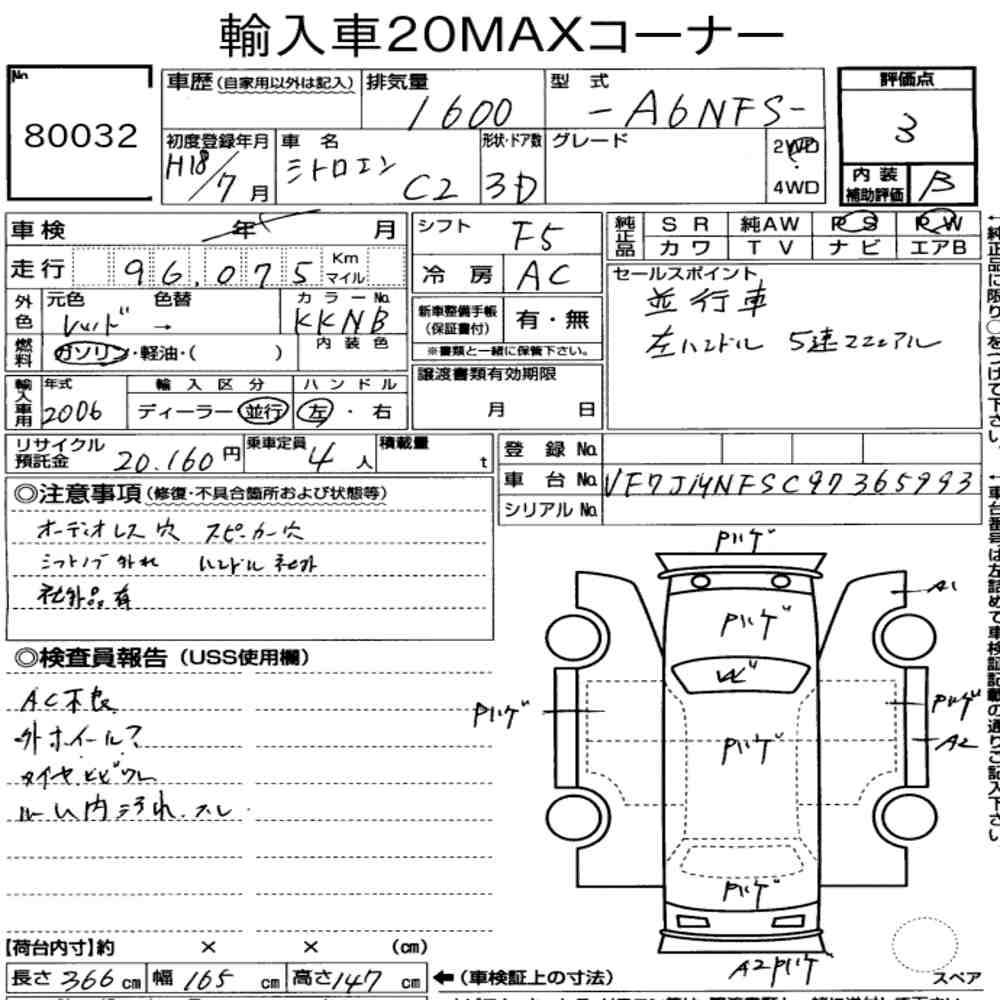 輸入車20MAXコーナー
No. 80032
車歴(自家用以外は記入) 排気量 1600 型式 -A6NFS-
評価点 3
初度登録年月 H18/7月 車名 シトロエン C2 形状・ドア数 3D グレード 2WD 4WD
内装補助評価 B
車検 年 月 シフト F5
純正品 SR 純AW PS PW カワ TV ナビ エアB
走行 96,075 Km マイル 冷房 AC
セールスポイント
並行車
左ハンドル 5速マニュアル
外色 元色 レッド 色替 → カラーNo. KKNB
新車整備手帳(保証書付) 有・無
※書類と一緒に保管下さい。
燃料 ガソリン・軽油・( ) 内装色
譲渡書類有効期限 月 日
輸入車用 年式 2006 輸入区分 ディーラー 並行 ハンドル 左・右
リサイクル預託金 20.160円 乗車定員 4人 積載量 t
登録No.
車台No. VF7JMNFSC97365993
シリアルNo.
◎注意事項(修復・不具合箇所および状態等)
オーディオレス穴 スピーカー穴
シフトノブ外れ ハンドル社外
社外品有
◎検査員報告(USS使用欄)
AC不良
外ホイール?
タイヤ ヒビワレ
ルーム内汚れ.スレ
Pハゲ
A1
Pハゲ
Pハゲ
Pハゲ
A2
Pハゲ
Pハゲ
A2 Pハゲ
スペア
【荷台内寸】約 × × (cm)
長さ 366 cm 幅 165 cm 高さ 147 cm ←(車検証上の寸法)
←純正品に限り○をつけて下さい。
←車台番号は左詰めで車検証記載の通りご記入下さい。